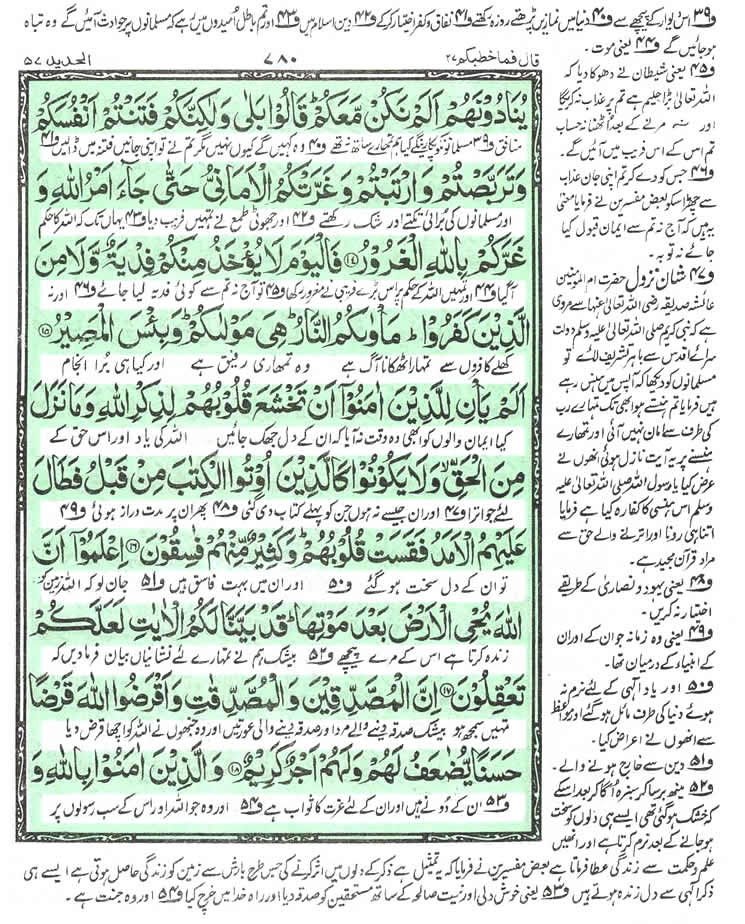 و۳۹ اس دیوار کے پیچھے سے و۴۰ دنیا میں نمازیں پڑھتے روزہ رکھتے و۴۱ نفاق و کفر اختیار کرکے و۴۲ دین اسلام میں و۴۳ اور تم باطل امیدوں میں رہے کہ مسلمانوں پر حوادث آئیں گے وہ تباہ
ہوجائیں گے و۴۴ یعنی موت ۔
قال فما خطبکم ۲۷ ۷۸۰ الحدید ۵۷
یُنَادُوْنَهُمْ اَلَمْ نَكُنْ مَّعَكُمْ ؕ قَالُوْا بَلٰی وَلٰكِنَّكُمْ فَتَنْتُمْ اَنْفُسَكُمْ
منافق و۳۹ مسلمانوں کو پکاریں گے کیا ہم تمہارے ساتھ نہ تھے و۴۰ وہ کہیں گے کیوں نہیں مگر تم نے تو اپنی جانیں فتنہ میں ڈالیں و۴۱
وَتَرَبَّصْتُمْ وَارْتَبْتُمْ وَغَرَّتْكُمُ الْاَمَانِیُّ حَتّٰی جَآءَ اَمْرُ اللّٰهِ وَ
اور مسلمانوں کی برائی تکتے اور شک رکھتے و۴۲ اور جھوٹی طمع نے تمہیں فریب دیا و۴۳ یہاں تک کہ اللہ کا حکم
غَرَّكُمْ بِاللّٰهِ الْغَرُوْرُ ﴿۱۴﴾ فَالْیَوْمَ لَا یُؤْخَذُ مِنْكُمْ فِدْیَةٌ وَّلَا مِنَ
آگیا و۴۴ اور تمہیں اللہ کے حکم پر اس بڑے فریبی نے مغرور رکھا و۴۵ تو آج نہ تم سے کوئی فدیہ لیا جائے و۴۶ اور نہ
الَّذِیْنَ كَفَرُوْا ؕ مَاْوٰىكُمُ النَّارُ ؕ هِیَ مَوْلٰىكُمْ ؕ وَبِئْسَ الْمَصِیْرُ ﴿۱۵﴾
کھلے کافروں سے تمہارا ٹھکانا آگ ہے وہ تمھاری رفیق ہے اور کیا ہی برا انجام
اَلَمْ یَاْنِ لِلَّذِیْنَ اٰمَنُوْۤا اَنْ تَخْشَعَ قُلُوْبُهُمْ لِذِكْرِ اللّٰهِ وَمَا نَزَلَ
کیا ایمان والوں کو ابھی وہ وقت نہ آیا کہ ان کے دل جھک جائیں اللہ کی یاد اور اس حق کے
مِنَ الْحَقِّ ۙ وَلَا یَكُوْنُوْا كَالَّذِیْنَ اُوْتُوا الْكِتٰبَ مِنْ قَبْلُ فَطَالَ
لئے جو اترا و۴۷ اور ان جیسے نہ ہوں جن کو پہلے کتاب دی گئی و۴۸ پھر ان پر مدت دراز ہوئی و۴۹
عَلَیْهِمُ الْاَمَدُ فَقَسَتْ قُلُوْبُهُمْ ؕ وَكَثِیْرٌ مِّنْهُمْ فٰسِقُوْنَ ﴿۱۶﴾ اِعْلَمُوْۤا اَنَّ
تو ان کے دل سخت ہو گئے و۵۰ اور ان میں بہت فاسق ہیں و۵۱ جان لو کہ اللہ زمین کو
اللّٰهَ یُحْیِ الْاَرْضَ بَعْدَ مَوْتِهَا ؕ قَدْ بَیَّنَّا لَكُمُ الْاٰیٰتِ لَعَلَّكُمْ
زندہ کرتا ہے اس کے مرے پیچھے و۵۲ بیشک ہم نے تمہارے لئے نشانیاں بیان فرما دیں کہ
تَعْقِلُوْنَ ﴿۱۷﴾ اِنَّ الْمُصَّدِّقِیْنَ وَالْمُصَّدِّقٰتِ وَاَقْرَضُوا اللّٰهَ قَرْضًا
تمہیں سمجھ ہو بیشک صدقہ دینے والے مرد اور صدقہ دینے والی عورتیں اور وہ جنھوں نے اللہ کو اچھا قرض دیا
حَسَنًا یُّضٰعَفُ لَهُمْ وَلَهُمْ اَجْرٌ كَرِیْمٌ ﴿۱۸﴾ وَالَّذِیْنَ اٰمَنُوْا بِاللّٰهِ وَ
و۵۳ ان کے دونے ہیں اور ان کے لئے عزت کا ثواب ہے و۵۴ اور وہ جو اللہ اور اس کے سب رسولوں پر
و۴۵ یعنی شیطان نے دھوکا دیا کہ
اللہ تعالیٰ بڑا حلیم ہے تم پر عذاب نہ کریگا
اور نہ مرنے کے بعد اٹھنا نہ حساب
تم اس کے اس فریب میں آگئے ۔
و۴۶ جس کو دے کر تم اپنی جان عذاب
سے چھڑا سکو بعض مفسرین نے فرمایا معنی
یہ ہیں کہ آج نہ تم سے ایمان قبول کیا
جائے نہ توبہ ۔
و۴۷ شان نزول حضرت ام المؤمنین
عائشہ صدیقہ رضی اللہ تعالیٰ عنہا سے مروی
ہے کہ نبی کریم صلی اللہ تعالیٰ علیہ وسلم دولت
سرائے اقدس سے باہر تشریف لائے تو
مسلمانوں کو دیکھا کہ آپس میں ہنس رہے
ہیں فرمایا تم ہنستے ہو ابھی تک تمہارے رب
کی طرف سے امان نہیں آئی اور تمھارے
ہنسنے پر یہ آیت نازل ہوئی انھوں نے
عرض کیا یا رسول اللہ صلی اللہ تعالیٰ علیہ
وسلم اس ہنسی کا کفارہ کیا ہے فرمایا
اتنا ہی رونا اور اترنے والے حق سے
مراد قرآن مجید ہے ۔
و۴۸ یعنی یہود و نصاریٰ کے طریقے
اختیار نہ کریں ۔
و۴۹ یعنی وہ زمانہ جو ان کے اور ان
کے انبیاء کے درمیان تھا ۔
و۵۰ اور یاد الٰہی کے لئے نرم نہ
ہوئے دنیا کی طرف مائل ہوگئے اور مواعظ
سے انھوں نے اعراض کیا ۔
و۵۱ دین سے خارج ہونے والے ۔
و۵۲ مینھ برسا کر سبزہ اگا کر بعد اسکے
کہ خشک ہوگئی تھی ایسے ہی دلوں کو سخت
ہوجانے کے بعد نرم کرتا ہے اور انھیں
علم و حکمت سے زندگی عطا فرماتا ہے بعض مفسرین نے فرمایا کہ یہ تمثیل ہے ذکر کے دلوں میں اثر کرنے کی جس طرح بارش سے زمین کو زندگی حاصل ہوتی ہے ایسے ہی
ذکر الٰہی سے دل زندہ ہوتے ہیں و۵۳ یعنی خوش دلی اور نیت صالحہ کے ساتھ مستحقین کو صدقہ دیا اور راہ خدا میں خرچ کیا و۵۴ اور وہ جنت ہے ۔